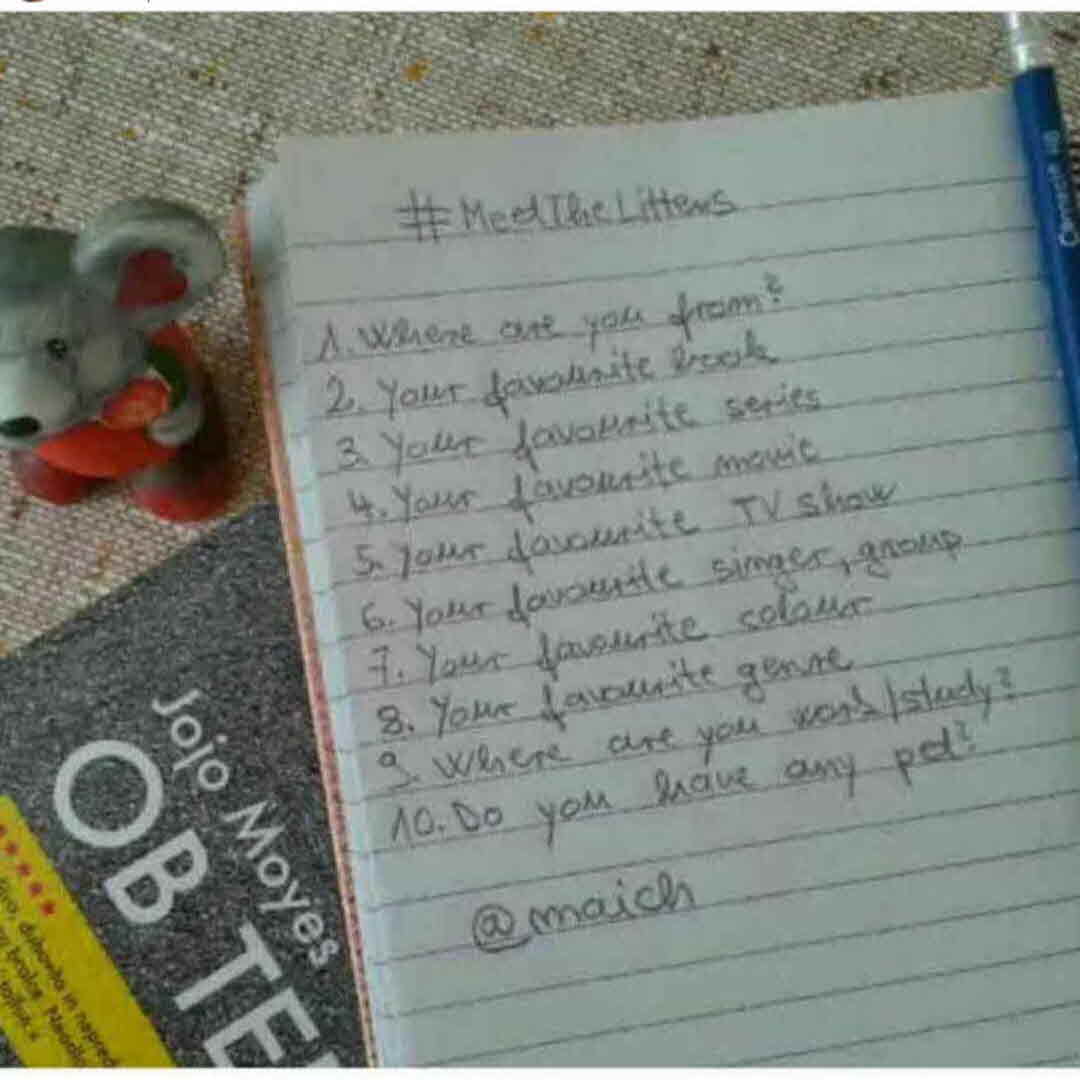 #MeetTheLittens
1. Where are you from?
2. Your favourite book
3. Your favourite series
4. Your favourite movie
5. Your favourite TV show
6. Your favourite singer, group
7. Your favourite colour
8. Your favourite genre
9. Where are you work/study?
10. Do you have any pet?
@maich
Jojo Moyes
OB TE
duhovita in